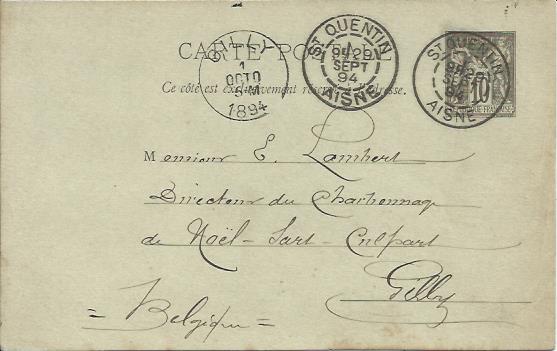 CARTE POSTALE
Ce côté est exclusivement réservé à l'adresse.
GILLY
1
OCTO
5-M
1894
ST QUENTIN
29
SEPT
94
AISNE
ST QUENTIN
94
AISNE
10
Monsieur E. Lambert
Directeur du Charbonnage
de Noël-Sart-Culpart
Gilly
= Belgique =